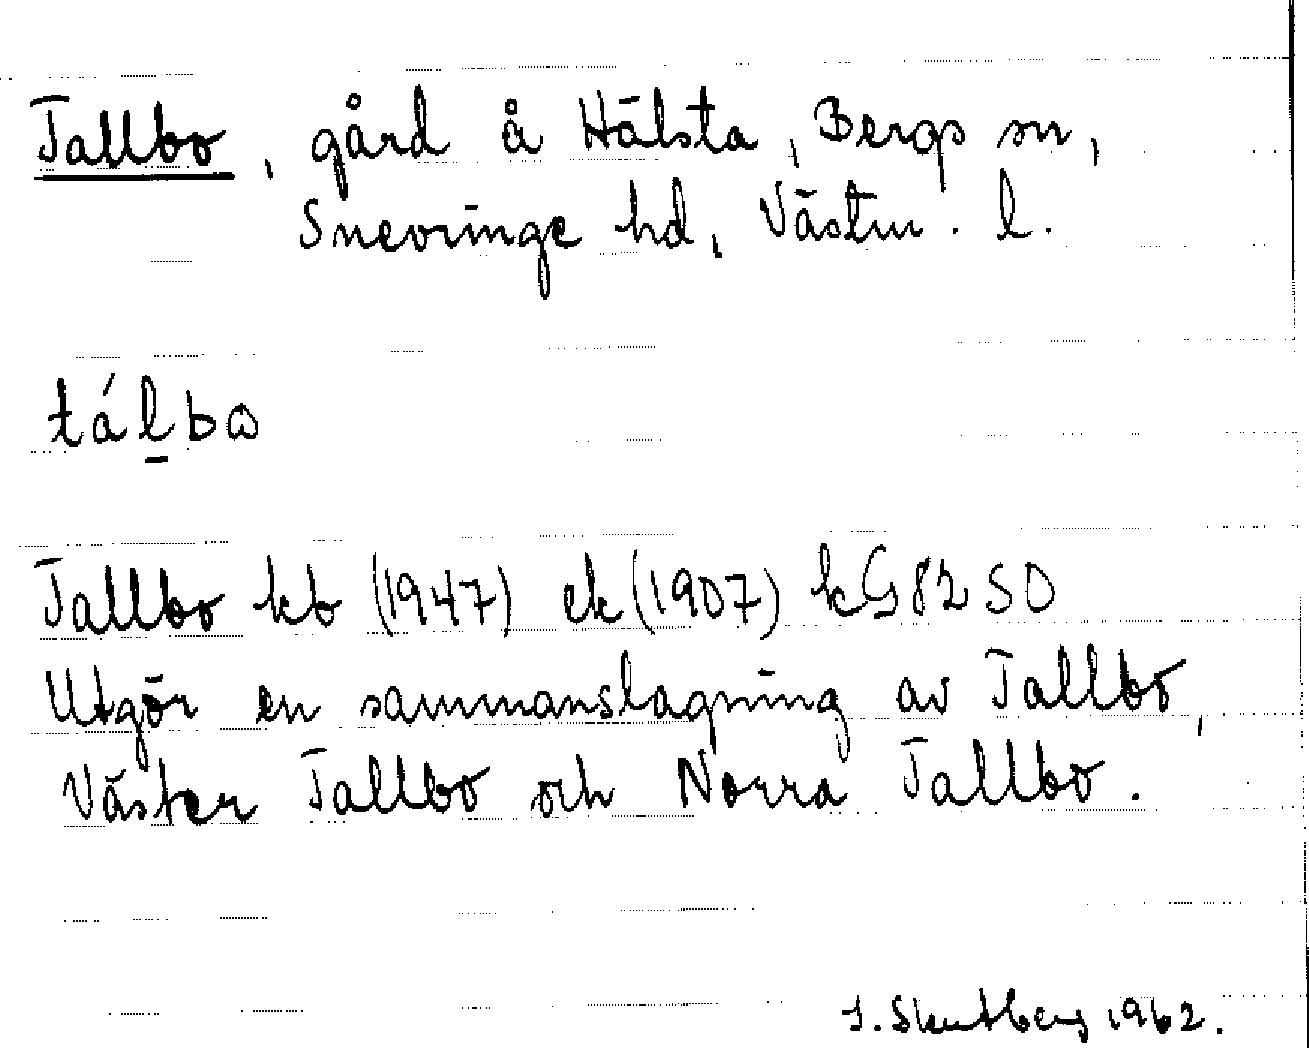 Tallbo, gård å Hälsta, Bergs sn,
Snevringe hd, Västm. l.
tál̲bɷ
Tallbo kb (1947) ek (1907) kG82SO
Utgör en sammanslagning av Tallbo,
Väster Tallbo och Norra Tallbo.
1962.